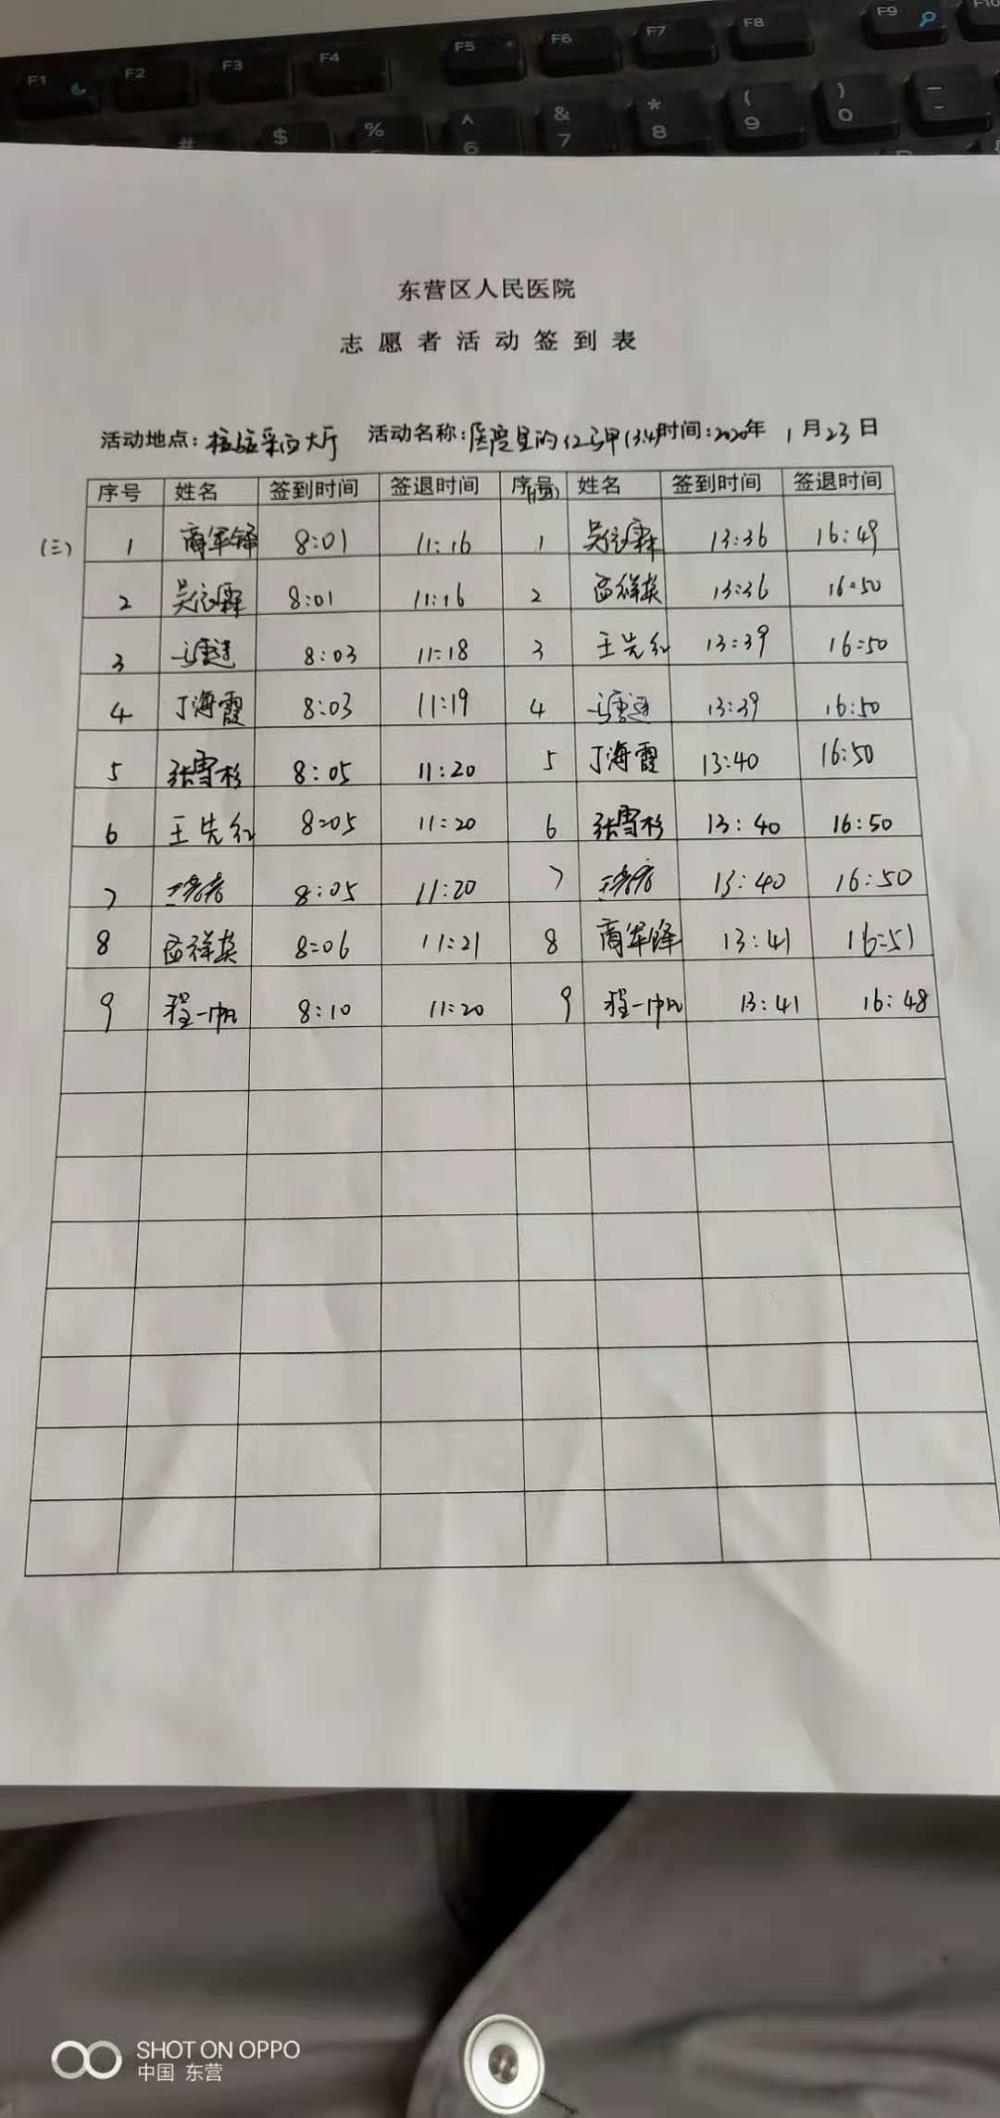 F1 F2 F3 F4 F5 F6 F7 F8 F9 F10
# $ % ^ 6 & 7 * 8 ( 9 ) 0 -
东营区人民医院
志愿者活动签到表
活动地点: 采血大厅 活动名称: 医院里的红马甲(34) 时间:2020年 1月23日
序号 姓名 签到时间 签退时间 序号 姓名 签到时间 签退时间
(三) 1 商军锋 8:01 11:16 1 吴依霖 13:36 16:49
2 吴依霖 8:01 11:16 2 祥英 13:36 16:50
3 8:03 11:18 3 王先红 13:39 16:50
4 丁海霞 8:03 11:19 4 13:39 16:50
5 张雪杉 8:05 11:20 5 丁海霞 13:40 16:50
6 王先红 8:05 11:20 6 张雪杉 13:40 16:50
7 8:05 11:20 7 13:40 16:50
8 祥英 8:06 11:21 8 商军锋 13:41 16:51
9 程一帆 8:10 11:20 9 程一帆 13:41 16:48
SHOT ON OPPO
中国 东营